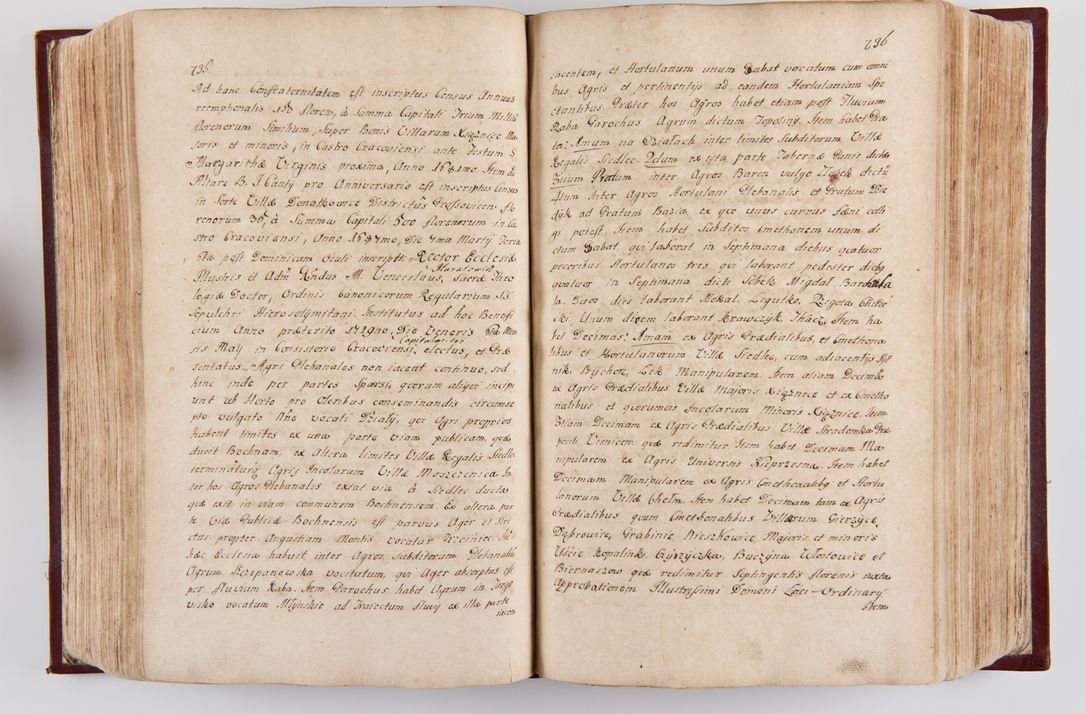 735
Ad hanc Confraternitatem est inscriptus Census Annuus
reemptionalis floren, à Summa Capitali Trium Millium
florenorum Similium, Super Bonis Villarum Xiąznice Ma
ioris et minoris, in Castro Cracoviensi ante Festum S.
Margarithæ Virginis proxima, Anno Item ad
Altare B. I Canty pro Anniversario est inscriptus Census
in Sorte Villæ Donatkowice Districtûs Proszovicen, flo
renorum à Summa Capitali 500 florenorum in Ca
stro Cracoviensi, Anno Die 7ma Martij Feria
post Dominicam Oculi inscripti. Rector Ecclesiæ
Illustris et Adm Rndus M. Venceslaus, Sacræ Theo
logiæ Doctor, Ordinis Canonicorum Regularium SS
Sepulchri Hierosolymitani Institutus ad hoc Benefi
cium Anno præterito 1729no, Die Veneris Men
sis Maij in Consistorio Cracoviensi, electus, et Præ
sentatus. Agri Plebanales non iacent continuo, sed
hinc inde per partes Sparsi, quorum aliqui incipi
unt ab Horto pro Oleribus conseminandis circumse
pto vulgato Nńe vocati Działy, qui Agri proprios
habent limites ex una parte viam publicam, quæ
ducit Bochnam, ex altera limites Villæ Regalis Siedlec
terminaturq Agris Incolarum Villæ Moszczenica. In
ter hos Agros Plebanales extat via à Siedlec ducta
quæ exit in viam communem Bochnensem. Ex altera par
te viæ Publicæ Bochnensis est parvus Ager et Stri
ctus propter Angustiam Montis vocatur Trzeiniec. Ite
hæc Ecclesia habuit inter Agros Subditorum Plebanaliû
Agrum Szczepanowska vocitatum, qui Ager absorptus est
per fluvium Raba. Item Parochus habet Agrum in
visko vocatum Młynskie ad Traiectum fluvij ex illa parte
iacen
736
iacentem, et Hortulanum unum Sabat vocatum cum omni
bus Agris et pertinentijs ad eandem Hortulaniam Spe
ctantibus. Præter hos Agros habet etiam post Fluvium
Raba Parochus Agrum dictum Topoliny. Item habet Pra
ta: Imum na Działach inter limites Subditorum Villæ
Regalis Siedlec. 2dum ex ista parte Tabernæ Panis dictæ
3tium Pratum inter Agros Baren vulgo dictû
4tum Inter Agros Hortulani Plebanalis, et Pratum Wie
dyk ad Pratum Basia, ex quo unus currus fæni colli
gi potest. Item habet Subditos Cmethonem unum di
ctum Sabat, qui laborat in Septimana diebus quatuor
pecoribus. Hortulanos tres qui laborant pedester dieb9
quatuor in Septimana dicti Schek Migdal
la. Duos dies laborant Mokal, Legutko, Zegota
ski. Unum diem laborant Krawczyk Tkacz. Item ha
bet Decimas: Imam ex Agris Prædialibus, et Cmethona
libus et Hortulanorum Villæ Siedlec, cum adiacentijs
nik, Bychorz, Łęk Manipularem. Item aliam Decimâ
ex Agris Prædialibus Villæ Majoris Xiąznice et ex Cmetho
nalibus et quorumvis Incolarum Minoris Xiąznice. Item
3tiam Decimam ex Agris Prædialibus Villæ Stradomka Præ
posito Visnicen quæ redimitur. Item habet Decimam Ma
nipularem ex Agris Universis Nieprzesna. Item habet
Decimam Manipularem ex Agris Cmethonalibq et Hortu
lanorum Villæ Chelm. Item habet Decimam tam ex Agris
Prædialibus quam Cmethonalibus Villarum Gierzyce,
Dąbrowice, Grabinie, Nieszkowice Majoris et minoris
Uście, Kopalink, Cyrzyczka, Buczyna Włostowice et
Biernaszow quæ redimitur Septingentis florenis iuxta
Approbationem Illustrissimi Domini Loci-Ordinarij
Item